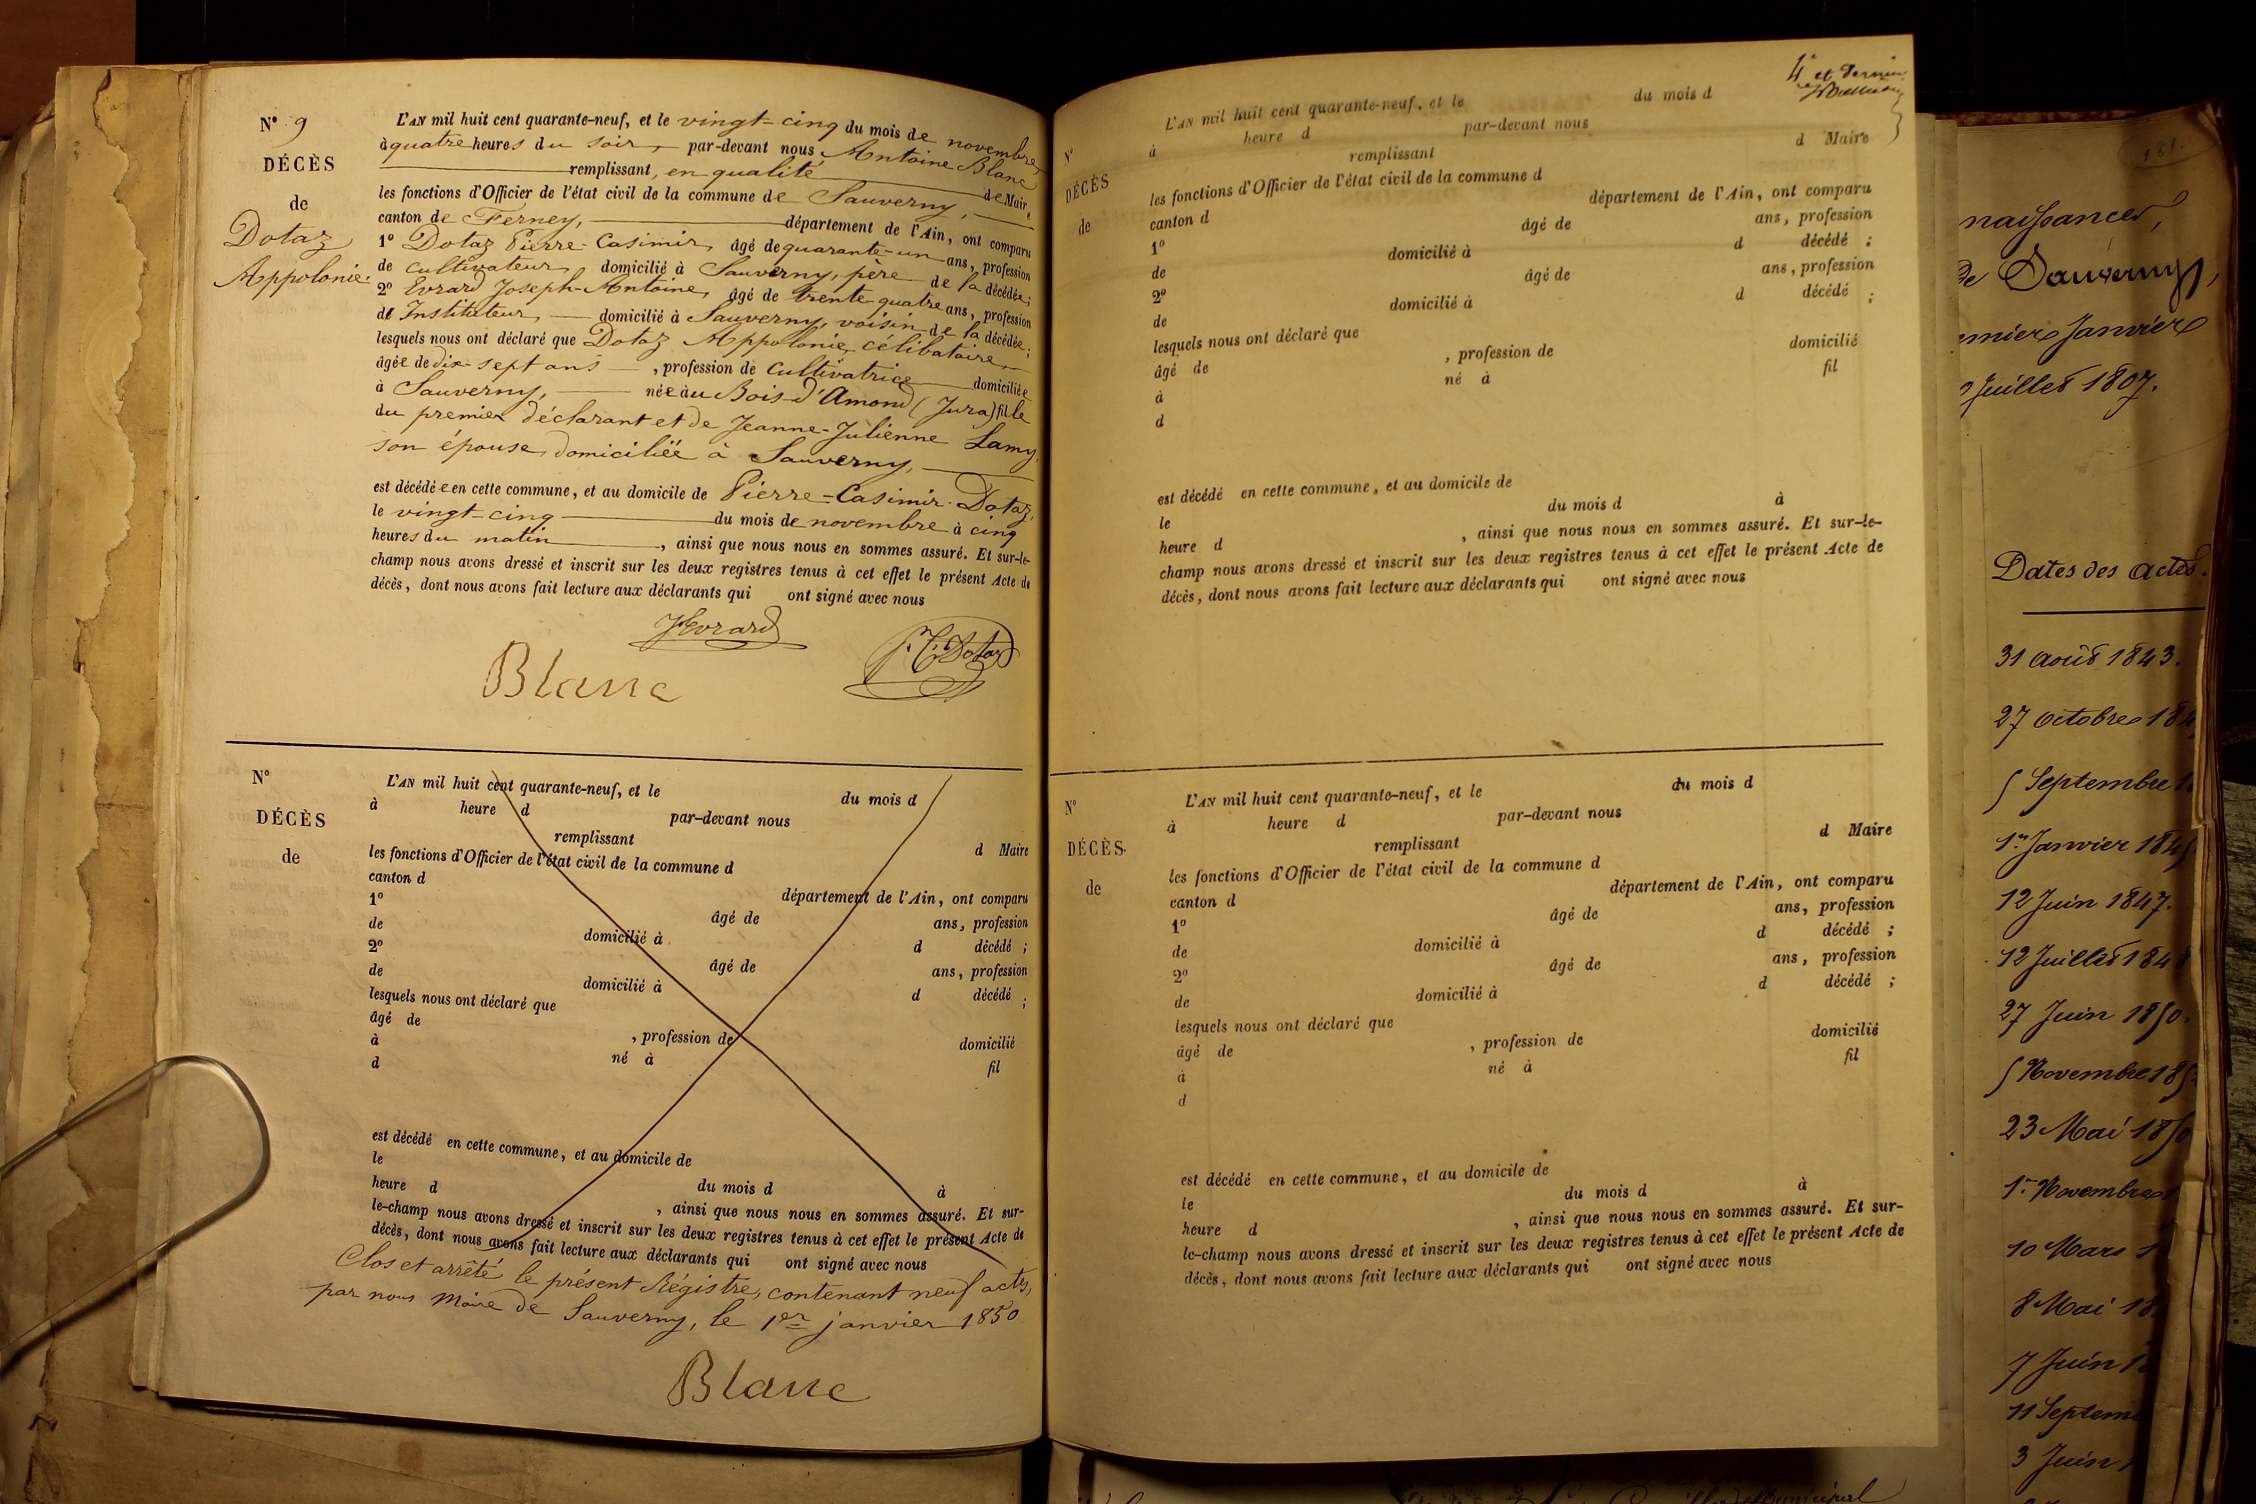 N° 9
DÉCÈS
de
Dotaz
Appolonie.
L'AN mil huit cent quarante-neuf, et le vingt-cinq du mois de novembre
à quatre heures du soir, par-devant nous Antoine Blanc
remplissant, en qualité de Maire,
les fonctions d'Officier de l'état civil de la commune de Sauverny,
canton de Ferney, département de l'Ain, ont comparu
1° Dotaz Pierre-Casimir, âgé de quarante-un ans, profession
de cultivateur, domicilié à Sauverny, père de la décédée;
2° Evrard Joseph-Antoine, âgé de trente quatre ans, profession
de Instituteur, domicilié à Sauverny, voisin de la décédée;
lesquels nous ont déclaré que Dotaz Appolonie, célibataire,
âgée de dix-sept ans, profession de cultivatrice domiciliée
à Sauverny, née au Bois-d'Amond (Jura) fille
du premier déclarant et de Jeanne-Julienne Lamy,
son épouse, domiciliée à Sauverny,
est décédée en cette commune, et au domicile de Pierre-Casimir Dotaz,
le vingt-cinq du mois de novembre à cinq
heures du matin, ainsi que nous nous en sommes assuré. Et sur-le-
champ nous avons dressé et inscrit sur les deux registres tenus à cet effet le présent Acte de
décès, dont nous avons fait lecture aux déclarants qui ont signé avec nous
JEvrard
P. C. Dotaz
Blanc
N°
DÉCÈS
de
L'AN mil huit cent quarante-neuf, et le du mois d
à heure d par-devant nous
remplissant d Maire
les fonctions d'Officier de l'état civil de la commune d
canton d département de l'Ain, ont comparu
1° âgé de ans, profession
de domicilié à d décédé ;
2° âgé de ans, profession
de domicilié à d décédé ;
lesquels nous ont déclaré que
âgé de , profession de domicilié
à né à fil
d
est décédé en cette commune, et au domicile de
le du mois d à
heure d , ainsi que nous nous en sommes assuré. Et sur-
le-champ nous avons dressé et inscrit sur les deux registres tenus à cet effet le présent Acte de
décès, dont nous avons fait lecture aux déclarants qui ont signé avec nous
Clos et arrêté le présent Régistre, contenant neuf actes,
par nous Maire de Sauverny, le 1er janvier 1850
Blanc
4e et dernier
N°
DÉCÈS
de
L'AN mil huit cent quarante-neuf, et le du mois d
à heure d par-devant nous
remplissant d Maire
les fonctions d'Officier de l'état civil de la commune d
canton d département de l'Ain, ont comparu
1° âgé de ans, profession
de domicilié à d décédé ;
2° âgé de ans, profession
de domicilié à d décédé ;
lesquels nous ont déclaré que
âgé de , profession de domicilié
à né à fil
d
est décédé en cette commune, et au domicile de
le du mois d à
heure d , ainsi que nous nous en sommes assuré. Et sur-le-
champ nous avons dressé et inscrit sur les deux registres tenus à cet effet le présent Acte de
décès, dont nous avons fait lecture aux déclarants qui ont signé avec nous
N°
DÉCÈS
de
L'AN mil huit cent quarante-neuf, et le du mois d
à heure d par-devant nous
remplissant d Maire
les fonctions d'Officier de l'état civil de la commune d
canton d département de l'Ain, ont comparu
1° âgé de ans, profession
de domicilié à d décédé ;
2° âgé de ans, profession
de domicilié à d décédé ;
lesquels nous ont déclaré que
âgé de , profession de domicilié
à né à fil
d
est décédé en cette commune, et au domicile de
le du mois d à
heure d , ainsi que nous nous en sommes assuré. Et sur-
le-champ nous avons dressé et inscrit sur les deux registres tenus à cet effet le présent Acte de
décès, dont nous avons fait lecture aux déclarants qui ont signé avec nous
181.
naissances,
de Sauverny,
Janvier
Juillet 1807.
Dates des actes.
31 août 1843.
27 octobre 184
5 Septembre 1
1er Janvier 184
12 Juin 1847.
12 Juillet 1848
27 Juin 1850.
5 Novembre 185
23 Mai 1850
1er Novembre 1
10 Mars 1
8 Mai 18
7 Juin 1
11 Septem
3 Juin
Municipal